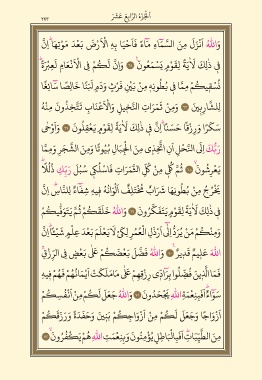 الجزء الرابع عشر
٢٧٣
وَاللّٰهُ اَنْزَلَ مِنَ السَّمَٓاءِ مَٓاءً فَاَحْيَا بِهِ الْاَرْضَ بَعْدَ مَوْتِهَاۜ اِنَّ
ف۪ي ذٰلِكَ لَاٰيَةً لِقَوْمٍ يَسْمَعُونَ۟ وَاِنَّ لَكُمْ فِي الْاَنْعَامِ لَعِبْرَةًۜ
نُسْق۪يكُمْ مِمَّا ف۪ي بُطُونِه۪ مِنْ بَيْنِ فَرْثٍ وَدَمٍ لَبَنًا خَالِصًا سَٓائِغًا
لِلشَّارِب۪ينَ وَمِنْ ثَمَرَاتِ النَّخ۪يلِ وَالْاَعْنَابِ تَتَّخِذُونَ مِنْهُ
سَكَرًا وَرِزْقًا حَسَنًاۜ اِنَّ ف۪ي ذٰلِكَ لَاٰيَةً لِقَوْمٍ يَعْقِلُونَ وَاَوْحٰى
رَبُّكَ اِلَى النَّحْلِ اَنِ اتَّخِذ۪ي مِنَ الْجِبَالِ بُيُوتًا وَمِنَ الشَّجَرِ وَمِمَّا
يَعْرِشُونَۙ ثُمَّ كُل۪ي مِنْ كُلِّ الثَّمَرَاتِ فَاسْلُك۪ي سُبُلَ رَبِّكِ ذُلُلًاۜ
يَخْرُجُ مِنْ بُطُونِهَا شَرَابٌ مُخْتَلِفٌ اَلْوَانُهُ ف۪يهِ شِفَٓاءٌ لِلنَّاسِۜ اِنَّ
ف۪ي ذٰلِكَ لَاٰيَةً لِقَوْمٍ يَتَفَكَّرُونَ وَاللّٰهُ خَلَقَكُمْ ثُمَّ يَتَوَفّٰيكُمْ
وَمِنْكُمْ مَنْ يُرَدُّ اِلٰٓى اَرْذَلِ الْعُمُرِ لِكَيْ لَا يَعْلَمَ بَعْدَ عِلْمٍ شَيْـًٔاۜ اِنَّ
اللّٰهَ عَل۪يمٌ قَد۪يرٌ۟ وَاللّٰهُ فَضَّلَ بَعْضَكُمْ عَلٰى بَعْضٍ فِي الرِّزْقِۚ
فَمَا الَّذ۪ينَ فُضِّلُوا بِرَٓادّ۪ي رِزْقِهِمْ عَلٰى مَا مَلَكَتْ اَيْمَانُهُمْ فَهُمْ ف۪يهِ
سَوَٓاءٌۜ اَفَبِنِعْمَةِ اللّٰهِ يَجْحَدُونَ وَاللّٰهُ جَعَلَ لَكُمْ مِنْ اَنْفُسِكُمْ
اَزْوَاجًا وَجَعَلَ لَكُمْ مِنْ اَزْوَاجِكُمْ بَن۪ينَ وَحَفَدَةً وَرَزَقَكُمْ
مِنَ الطَّيِّبَاتِۜ اَفَبِالْبَاطِلِ يُؤْمِنُونَ وَبِنِعْمَتِ اللّٰهِ هُمْ يَكْفُرُونَۙ